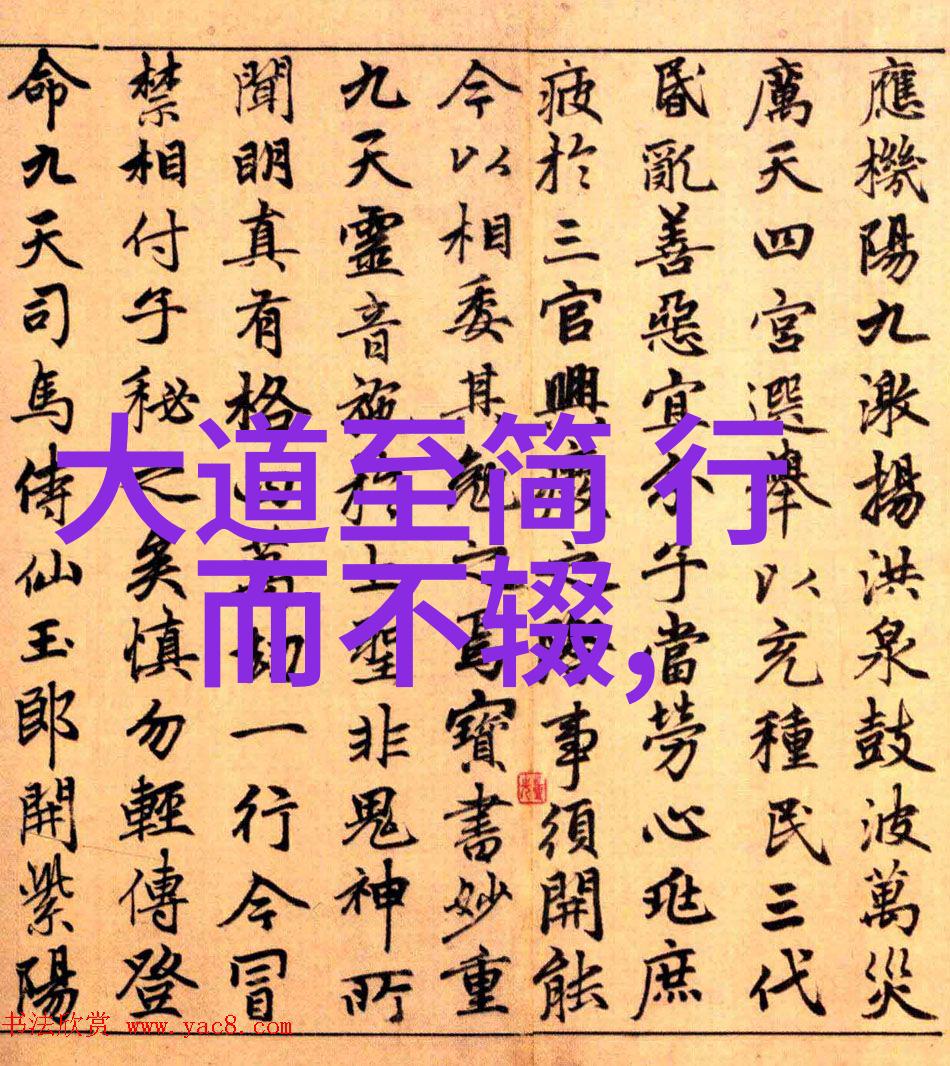 應機陽九激揚洪泉鼓波萬災
厲天四宮選舉以充種民三代
昏亂善惡宜分子當勞心兆庶
疲於三官興廢之際事須開能
今以相委其勉之焉寶書妙重
九天靈音施於上聖非鬼神所
聞明真有格四萬劫一行今冒
禁相付子秘之矣慎勿輕傳登
命九天司馬侍仙玉郎開紫陽
大道至简 行
而不辍,
书法欣赏 www.yac8.com